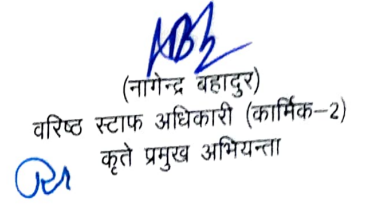 (नागेन्द्र बहादुर)
वरिष्ठ स्टाफ अधिकारी (कार्मिक-2)
कृते प्रमुख अभियन्ता